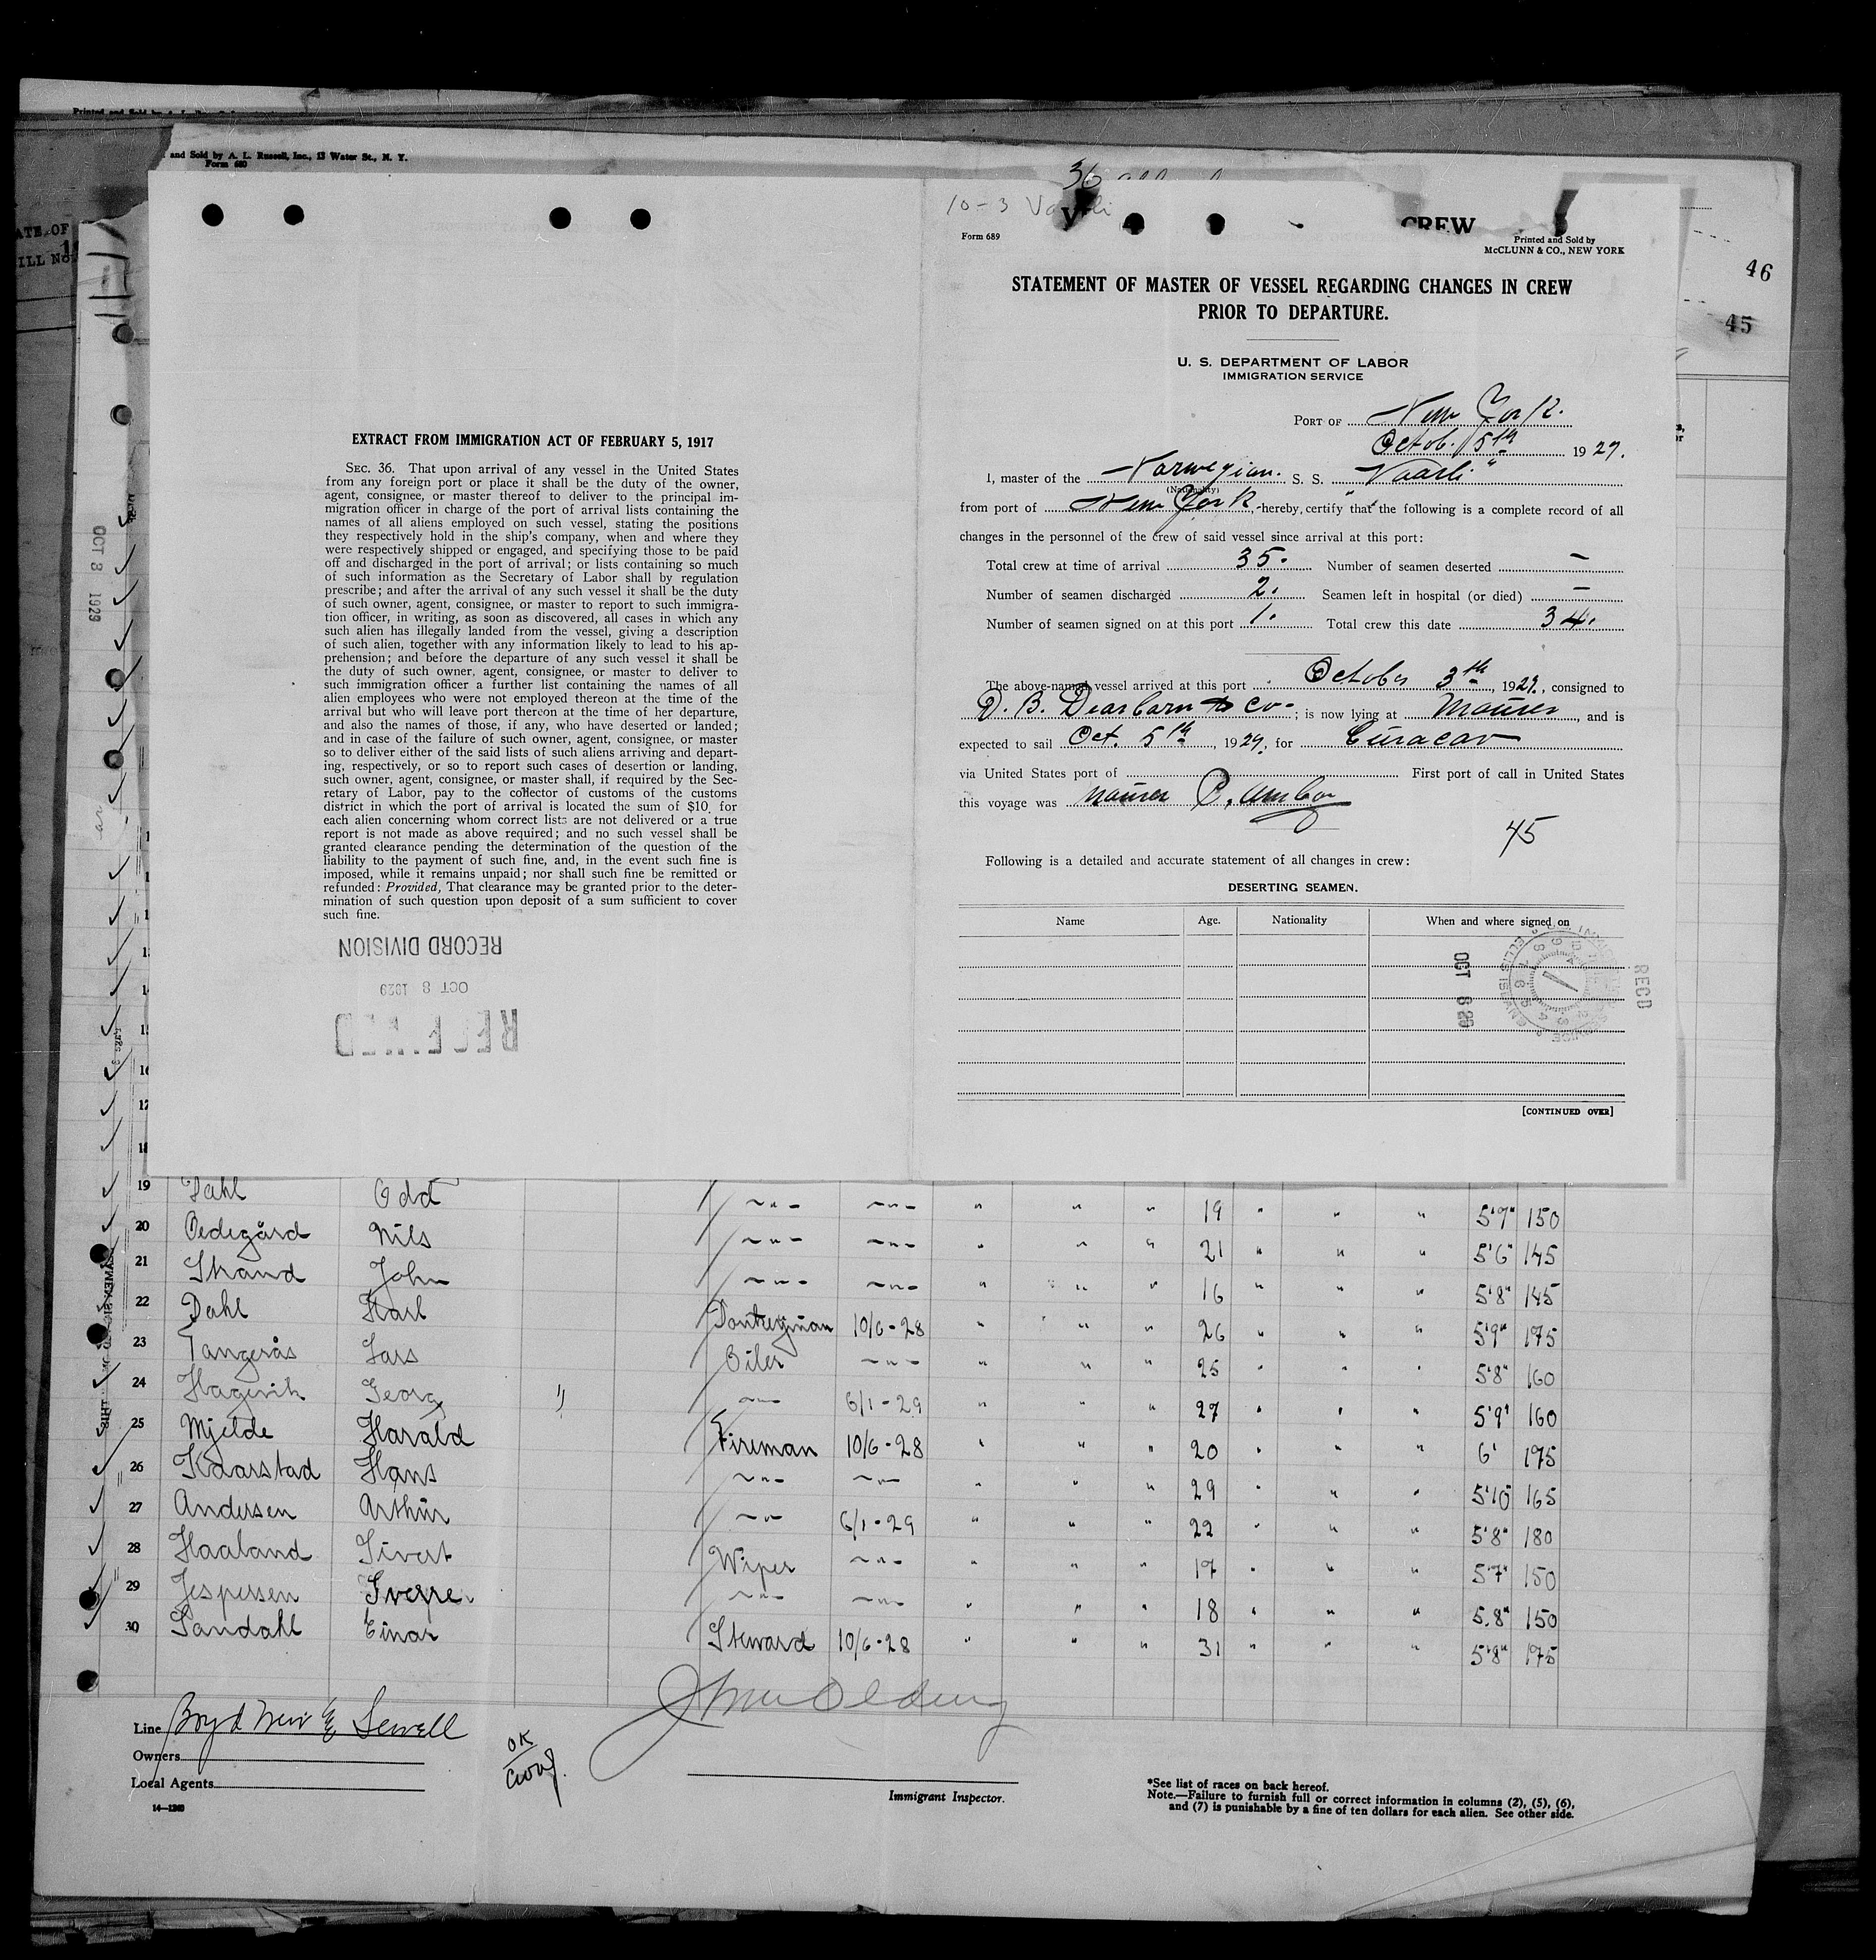 Printed and Sold by A. L.
and Sold by A. L. Russell, Inc., 13 Water St., N. Y.
Form 680
ATE OF
ILL NO.
46
45
OCT 8 1929
36
10-3 Vaarli
CREW
Form 689
Printed and Sold by
McCLUNN & CO., NEW YORK
STATEMENT OF MASTER OF VESSEL REGARDING CHANGES IN CREW
PRIOR TO DEPARTURE.
U. S. DEPARTMENT OF LABOR
IMMIGRATION SERVICE
PORT OF New York.
Octob. 5th 1929.
I, master of the Norwegian. S. S. "Vaarli"
(Nationality)
from port of New York, hereby certify that the following is a complete record of all
changes in the personnel of the crew of said vessel since arrival at this port:
Total crew at time of arrival 35. Number of seamen deserted –
Number of seamen discharged 2. Seamen left in hospital (or died) –
Number of seamen signed on at this port 1. Total crew this date 34.
The above-named vessel arrived at this port October 3th, 1929, consigned to
D. B. Dearborn & Co-; is now lying at Maurer, and is
expected to sail Oct. 5th, 1929, for Curacao
via United States port of First port of call in United States
this voyage was Maurer P. Amboy
45
Following is a detailed and accurate statement of all changes in crew:
DESERTING SEAMEN.
Name Age. Nationality When and where signed on
OCT 8 29
RECD
[CONTINUED OVER]
EXTRACT FROM IMMIGRATION ACT OF FEBRUARY 5, 1917
SEC. 36. That upon arrival of any vessel in the United States
from any foreign port or place it shall be the duty of the owner,
agent, consignee, or master thereof to deliver to the principal im-
migration officer in charge of the port of arrival lists containing the
names of all aliens employed on such vessel, stating the positions
they respectively hold in the ship's company, when and where they
were respectively shipped or engaged, and specifying those to be paid
off and discharged in the port of arrival; or lists containing so much
of such information as the Secretary of Labor shall by regulation
prescribe; and after the arrival of any such vessel it shall be the duty
of such owner, agent, consignee, or master to report to such immigra-
tion officer, in writing, as soon as discovered, all cases in which any
such alien has illegally landed from the vessel, giving a description
of such alien, together with any information likely to lead to his ap-
prehension; and before the departure of any such vessel it shall be
the duty of such owner, agent, consignee, or master to deliver to
such immigration officer a further list containing the names of all
alien employees who were not employed thereon at the time of the
arrival but who will leave port thereon at the time of her departure,
and also the names of those, if any, who have deserted or landed;
and in case of the failure of such owner, agent, consignee, or master
so to deliver either of the said lists of such aliens arriving and depart-
ing, respectively, or so to report such cases of desertion or landing,
such owner, agent, consignee, or master shall, if required by the Sec-
retary of Labor, pay to the collector of customs of the customs
district in which the port of arrival is located the sum of $10 for
each alien concerning whom correct lists are not delivered or a true
report is not made as above required; and no such vessel shall be
granted clearance pending the determination of the question of the
liability to the payment of such fine, and, in the event such fine is
imposed, while it remains unpaid; nor shall such fine be remitted or
refunded: Provided, That clearance may be granted prior to the deter-
mination of such question upon deposit of a sum sufficient to cover
such fine.
RECORD DIVISION
OCT 8 1929
RECEIVED
19 Dahl Odd ~"~ ~"~ " " " 19 " " " 5'7" 150
20 Oedegård Nils ~"~ ~"~ " " " 21 " " " 5'6" 145
21 Strand John ~"~ ~"~ " " " 16 " " " 5'8" 145
22 Dahl Karl Donkeyman 10/6-28 " " " 26 " " " 5'9" 175
23 Tangerås Lars Oiler ~"~ " " " 25 " " " 5'8" 160
24 Hagevik Georg ~"~ 6/1-29 " " " 27 " " " 5'9" 160
25 Mjelde Harald Fireman 10/6-28 " " " 20 " " " 6' 175
26 Kaarstad Hans ~"~ ~"~ " " " 29 " " " 5'10" 165
27 Andersen Arthur ~"~ 6/1-29 " " " 22 " " " 5'8" 180
28 Haaland Sivert Wiper ~"~ " " " 17 " " " 5'7" 150
29 Jespersen Sverre ~"~ ~"~ " " " 18 " " " 5.8" 150
30 Sandahl Einar Steward 10/6-28 " " " 31 " " " 5'8" 175
Line Boyd Weir & Sewell
Owners
Local Agents
14—1240
OK
Immigrant Inspector.
*See list of races on back hereof.
Note.—Failure to furnish full or correct information in columns (2), (5), (6),
and (7) is punishable by a fine of ten dollars for each alien. See other side.